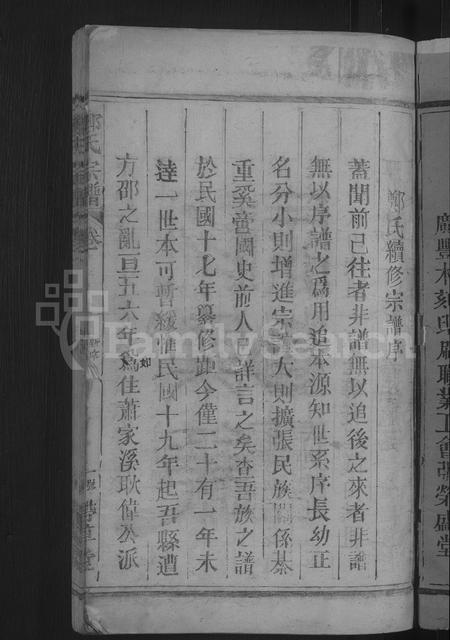 鄭氏續修宗譜序
蓋聞前已往者非譜無以追後之來者非譜
無以序譜之為用追本源知世系序長幼正
名分小則增進宗 大則擴張民族關係綦
重奚啻國史前人已詳言之矣查吾族之譜
於民國十七年纂修距今僅二十有一年未
達一世本可暫緩惟民國十九年起吾縣遭
方邵之亂亘五六年為住蕭家溪耿偉公派
如
鄭氏宗譜
卷一
序
一
堂
廣豐木刻印刷職業工會張榮盛堂
FamilySearch